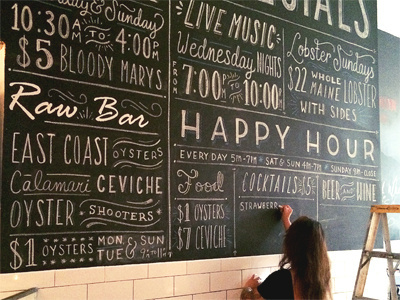 SPECIALS
& SUNDAY
10:30 AM TO 4:00 PM
$5 BLOODY MARYS
Raw Bar
EAST COAST OYSTERS
Calamari CEVICHE
OYSTER SHOOTERS
$1 OYSTERS MON, TUE & SUN
LIVE MUSIC
Wednesday NIGHTS
FROM 7:00 TO 10:00
Lobster Sundays
$22 WHOLE MAINE LOBSTER
WITH SIDES
HAPPY HOUR
EVERY DAY 5PM-7PM SAT & SUN 4PM-7PM SUNDAY 9PM-CLOSE
Food
$1 OYSTERS
$7 CEVICHE
COCKTAILS $5
STRAWBERR
BEER AND WINE